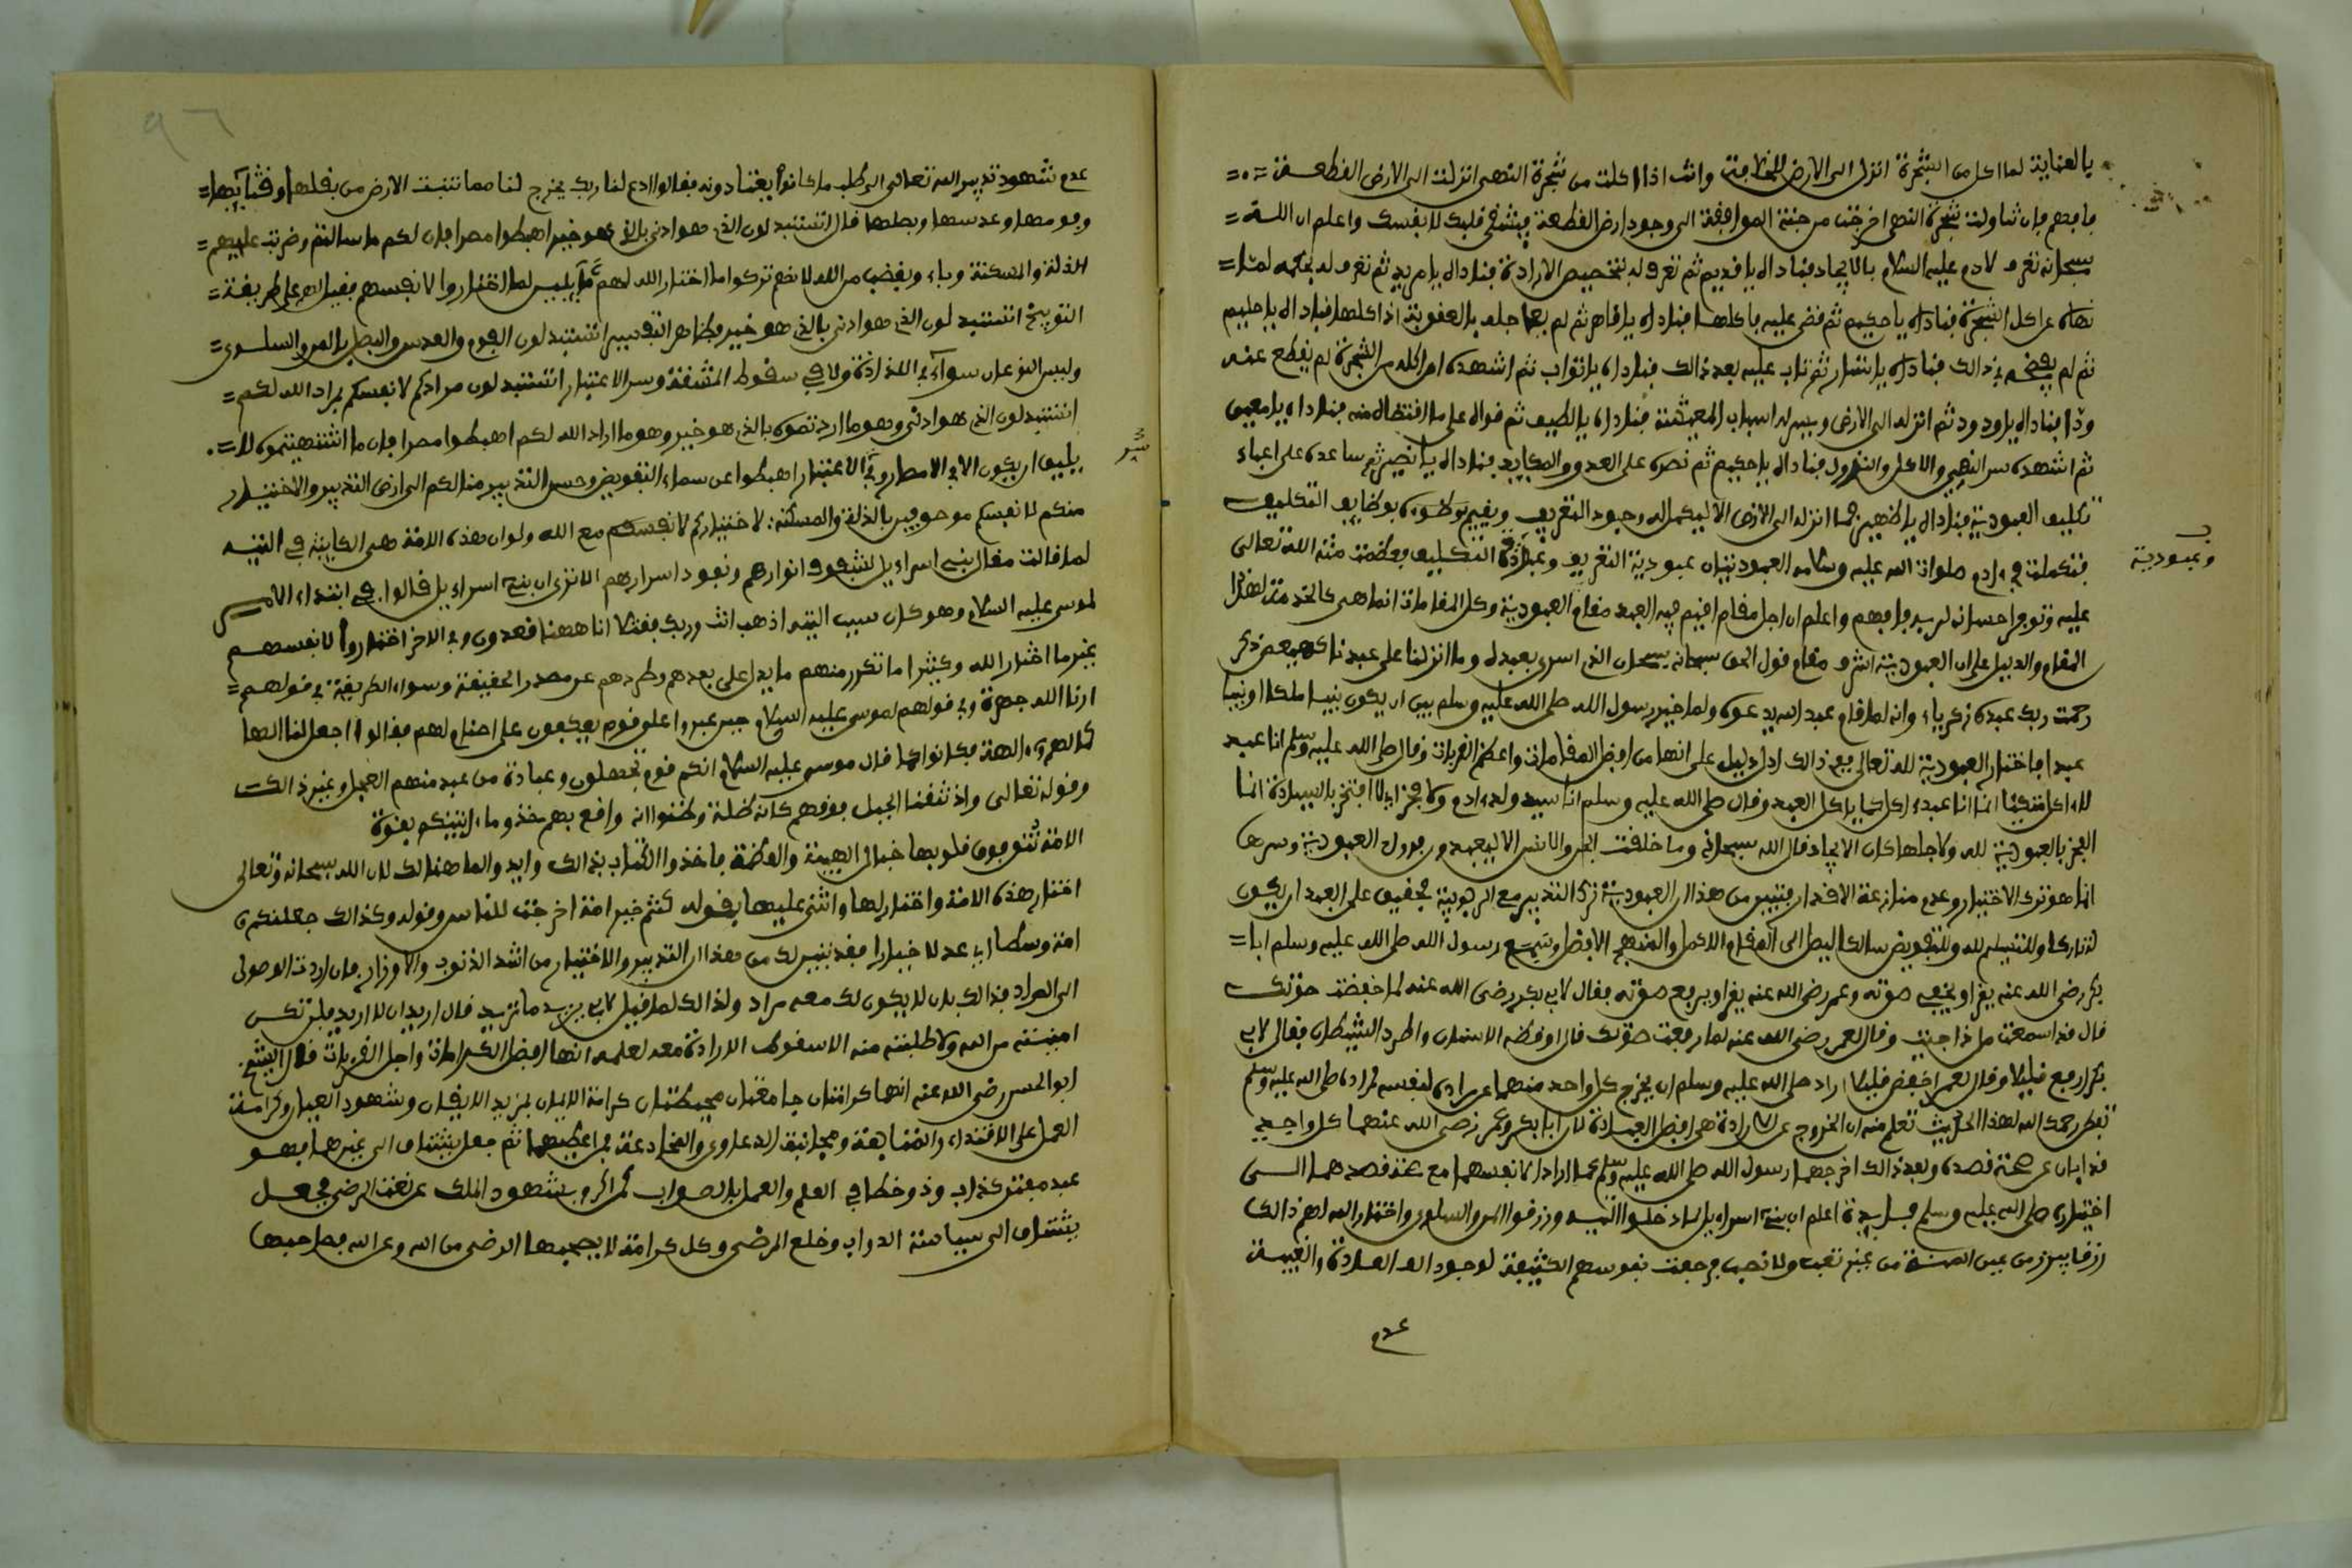 بالعناية لما اكل من الشجرة انزل الى الارض للخلافة وانت اذا اكلت من شجرة النهي انزلت الى الارض القطيعة
فافهم فان تناولت شجرة النهي اخرجت من جنة الموافقة الى وجود ارض القطيعة فيشقى قلبك لا نفسك واعلم ان الله
سبحانه تعرف لادم عليه السلام بالايجاد فناداه يا قديم ثم تعرف له بتخصيص الارادة فناداه يا مريد ثم تعرف له بحكمه لما
نهاه عن اكل الشجرة فناداه يا حكيم ثم قضى عليه باكلها فناداه يا قاهر ثم لم يعاجله بالعقوبة اذ اكلها فناداه يا حليم
ثم لم يفضحه في ذالك فناداه يا ستار ثم تاب عليه بعد ذالك فناداه يا تواب ثم اشهده ان اكله من الشجرة لم يقطع عنه
ودّا فناداه يا ودود ثم انزله الى الارض ويسر له اسباب المعيشة فناداه يا لطيف ثم قواه على ما اقتضاه منه فناداه يا معين
ثم اشهده سر النهي والاكل والنزول فناداه يا حكيم ثم نصره على العدو والمكايد فناداه يا نصير ثم ساعده على اعباء
تكليف العبودية فناداه يا ظهير فما انزله الى الارض الا ليكمل له وجود التعريف ويقيمه بوظايف التكليف
فتكملت في ءادم صلوات الله عليه وسلامه العبوديتان عبودية التعريف وعبودية التكليف فعظمت منة الله تعالى
وعبودية
عليه وتوفر احسانه لديه فافهم واعلم ان اجل مقام اقيم فيه العبد مقام العبودية وكل المقامات انما هي كالخدمة لهذا
المقام والدليل على ان العبودية اشرف مقام قول الحق سبحانه سبحان الذي اسرى بعبده وما انزلنا على عبدنا كهيعص ذكر
رحمت ربك عبده زكرياء وانه لما قام عبد الله يدعوه ولما خير رسول الله صلى الله عليه وسلم بين ان يكون نبيا ملكا او نبيا
عبدا فاختار العبودية لله تعالى ففي ذالك ادل دليل على انها من افضل المقامات واعظم القربات وقال صلى الله عليه وسلم انا عبد
لا ءاكل متكئا انما انا عبد ءاكل كما ياكل العبد وقال صلى الله عليه وسلم انا سيد ولد ءادم ولا فخر اي لا افتخر بالسيادة انما
الفخر بالعبودية لله ولاجلها كان الايجاد قال الله سبحانه وما خلقت الجن والانس الا ليعبدون العبودية وسرها
انما هو ترك الاختيار وعدم منازعة الاقدار فتبين من هذا ان العبودية ترك التدبير مع الربوبية فحقيق على العبد ان يكون
له تاركا وللتسليم لله وللتفويض سالكا ليصل الى المقام الاكمل والمنهج الافضل وسمع رسول الله صلى الله عليه وسلم ابا
بكر رضي الله عنه يقرا ويخفي صوته وعمر رضي الله عنه يقرا ويرفع صوته فقال لابي بكر رضي الله عنه لم اخفضت صوتك
قال قد اسمعت من ناجيت وقال لعمر رضي الله عنه لما رفعت صوتك قال اوقظ الوسنان واطرد الشيطان فقال لابي
بكر ارفع قليلا وقال لعمر اخفض قليلا اراد صلى الله عليه وسلم ان يخرج كل واحد منهما عن مراده لنفسه لمراده صلى الله عليه وسلم
تفطن رحمك الله لهذا الحديث تعلم منه ان الخروج عن الارادة هي افضل العبادة لان ابا بكر وعمر رضي الله عنهما كل واحد
قد ابان عن صحة قصده وبعد ذالك اخرجهما رسول الله صلى الله عليه وسلم عما ارادا لانفسهما مع صحة قصدهما الى
اختياره صلى الله عليه وسلم فايدة اعلم ان بني اسراءيل لما دخلوا التيه ورزقوا المن والسلوى واختار الله لهم ذالك
رزقا يبرز من عين المنة من غير تعب ولا نصب فرجعت نفوسهم الكثيفة لوجود الف العادة والغيبة
عدم
٩٦
عدم شهود تدبير الله تعالى الى طلب ما كانوا يعتادونه فقالوا ادع لنا ربك يخرج لنا مما تنبت الارض من بقلها وقثآيها
وفومها وعدسها وبصلها قال اتستبدلون الذي هو ادنى بالذي هو خير اهبطوا مصرا فان لكم ما سالتم وضربت عليهم
الذلة والمسكنة وباءو بغضب من الله لانهم تركوا ما اختار الله لهم لما اختاروا لانفسهم فقيل لهم على طريقة
التوبيخ اتستبدلون الذي هو ادنى بالذي هو خير فظاهر التفسير اتستبدلون الفوم والعدس والبصل بالمن والسلوى
وليس النوعان سوآء في اللذاذة ولا في سقوط المشقة وسر الاعتبار اتستبدلون مرادكم لانفسكم بمراد الله لكم
اتستبدلون الذي هو ادنى وهو ما اردتموه بالذي هو خير وهو ما اراد الله لكم اهبطوا مصرا فان ما اشتهيتموه لا
يليق ان يكون الا في الامصار وفي الاعتبار اهبطوا عن سماء التفويض وحسن التدبير منا لكم الى ارض التدبير والاختيار
منكم لانفسكم موصوفين بالذلة والمسكنة لاختياركم لانفسكم مع الله ولو ان هذه الامة هي الكاينة في التيه
لما قالت مقال بني اسراءيل لشفوف انوارهم ونفوذ اسرارهم الا ترى ان بني اسراءيل قالوا في ابتداء الامر
لموسى عليه السلام وهو كان سبب التيه اذهب انت وربك فقتلا انا ههنا قعدون وفي الاخر اختاروا لانفسهم
غير ما اختار الله وكثيرا ما تكرر منهم ما يدل على بعدهم وطردهم عن مصدر الحقيقة وسواء الطريقة في قولهم
ارنا الله جهرة وفي قولهم لموسى عليه السلام حين عبروا على قوم يعكفون على اصنام لهم فقالوا اجعل لنا الها
كما لهم ءالهة فكانوا كما قال موسى عليه السلام انكم قوم تجهلون وعبادة من عبد منهم العجل وغير ذالك
وقوله تعالى واذ نتقنا الجبل فوقهم كانه ظلة وظنوا انه واقع بهم خذوا ما ءاتينكم بقوة
الامة فلوبها جبال الهيبة والعظمة فاخذوا الكتاب بذالك وايدوا لما هنالك لان الله سبحانه وتعالى
اختار هذه الامة واختار لها واثنى عليها بقوله كنتم خير امة اخرجت للناس وقوله وكذالك جعلنكم
امة وسطا اي عدلا خيارا فقد تبين لك من هذا ان التدبير والاختيار من اشد الذنوب والاوزار فان اردت الوصول
الى المراد فذالك بان لا يكون لك معه مراد ولذالك لما قيل لابي يزيد ما تريد قال اريد ان لا اريد فلم تكن
امنيته من الله ولا طلبته منه الا سقوط الارادة معه لعلمه انها افضل الكرامات واجل القربات قال الشيخ
ابو الحسن رضي الله عنه انهما كرامتان جامعتان محيطتان كرامة الايمان بمزيد الايقان وشهود العيان وكرامة
العمل على الاقتداء والمتابعة ومجانبة الدعاوى والمخادعة فمن اعطيهما ثم جعل يشتاق الى غيرهما فهو
عبد مفتر كذاب وذو خطا في العلم والعمل بالصواب كمن اكرم بشهود الملك على نعت الرضى فجعل
يشتاق الى سياسة الدواب وخلع المرضى وكل كرامة لا يصحبها الرضى من الله وعن الله فصاحبها